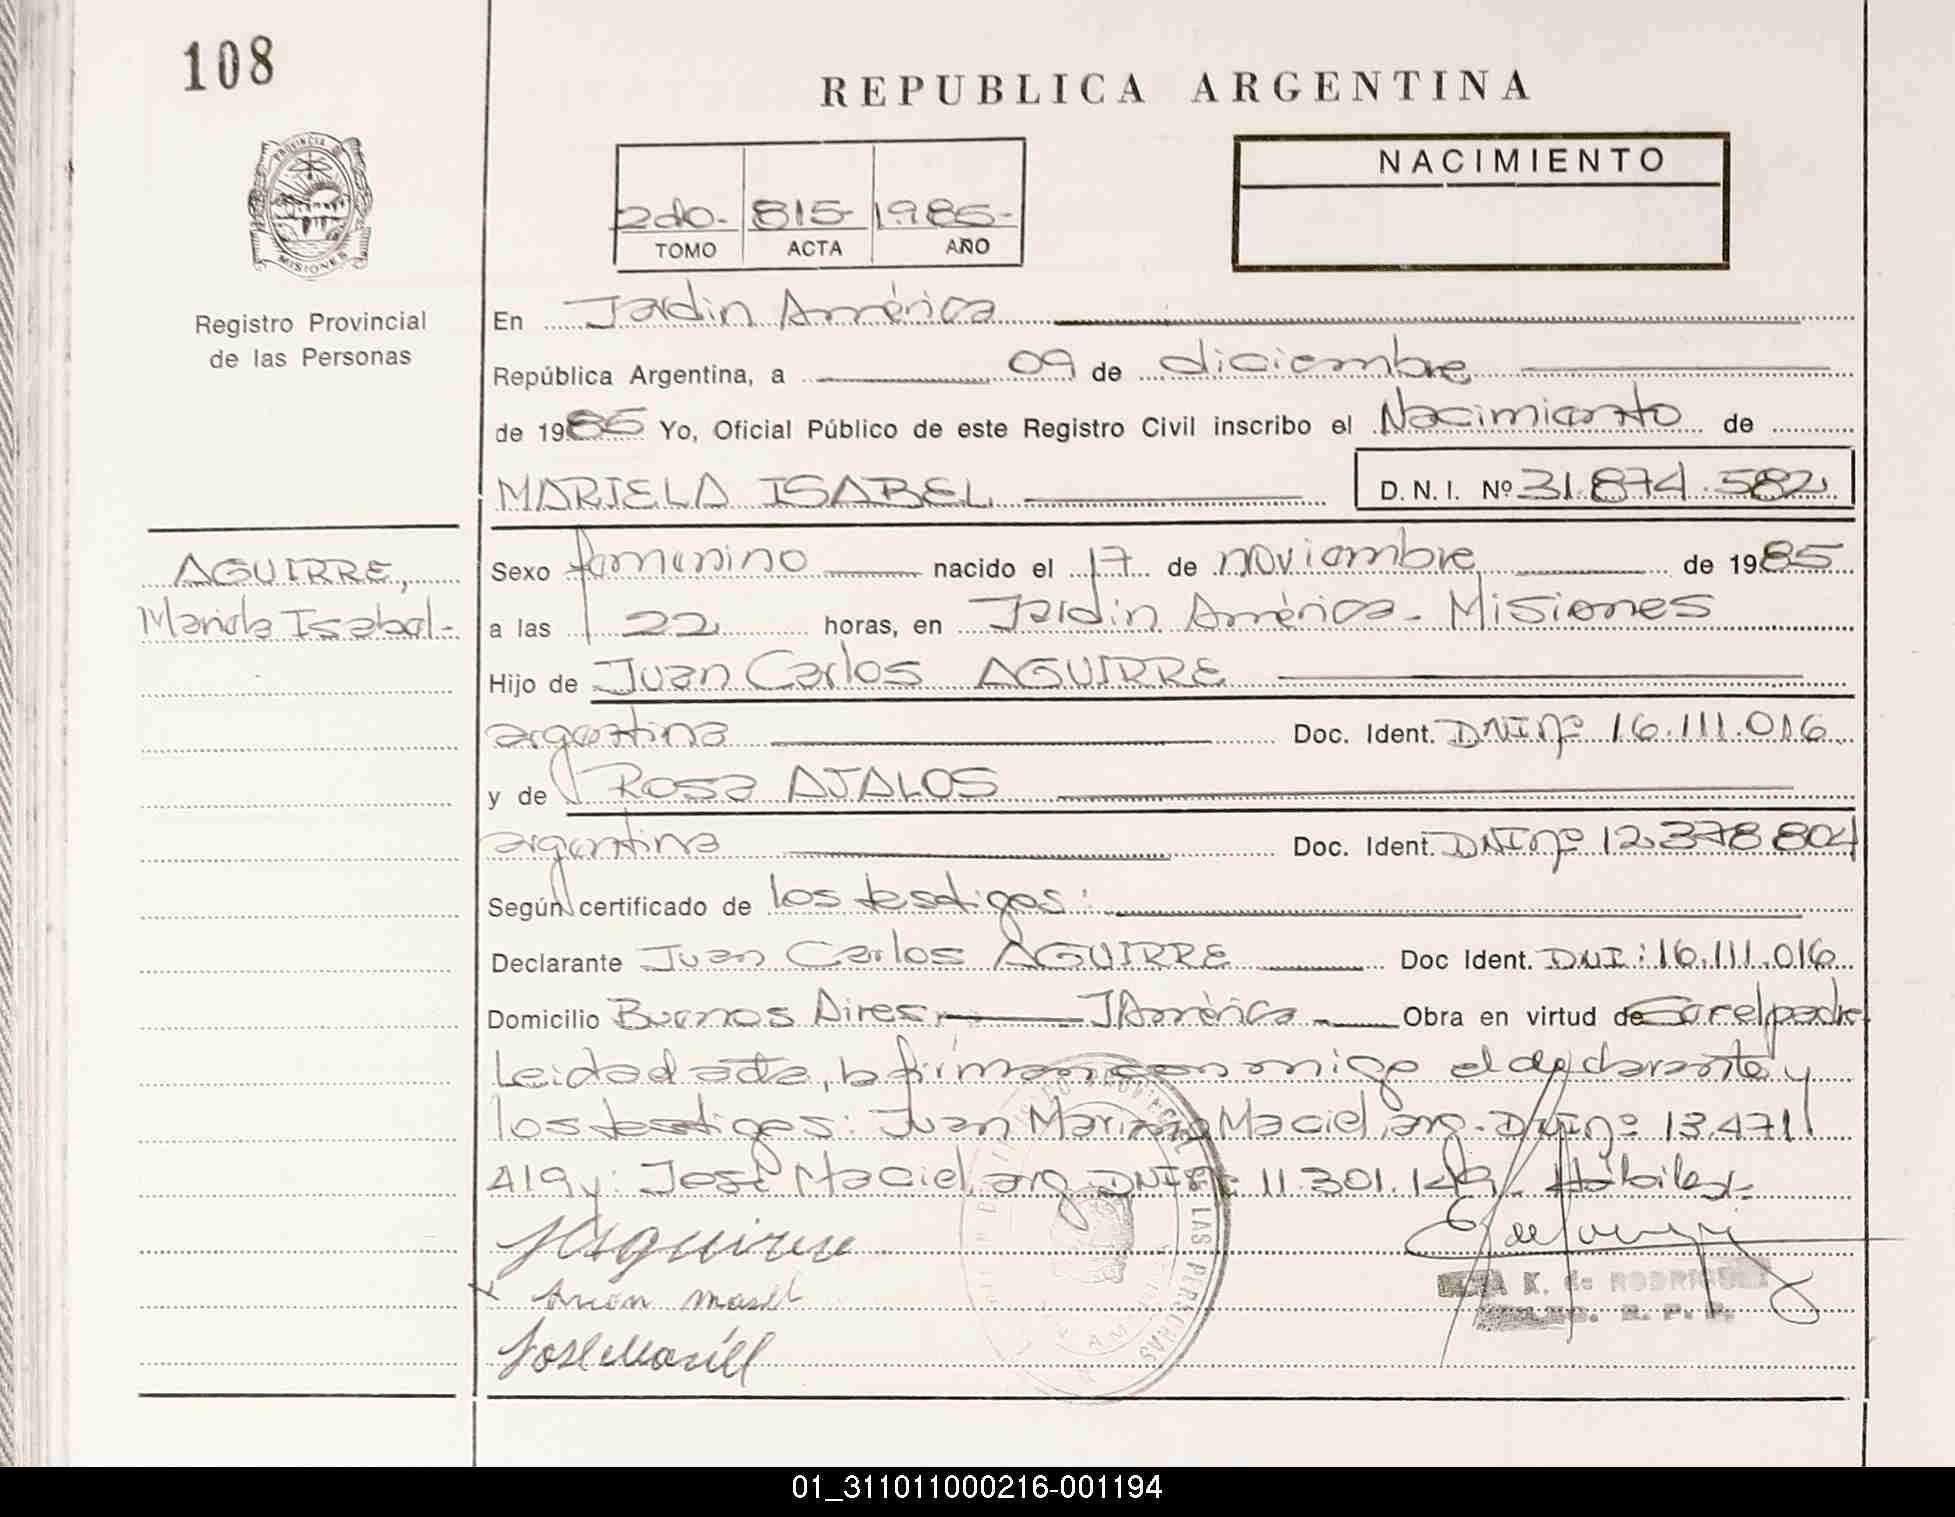 108
REPUBLICA ARGENTINA
PROVINCIA DE
MISIONES
Registro Provincial
de las Personas
2do- 815- 1985-
TOMO ACTA AÑO
NACIMIENTO
En Jardin América
República Argentina, a 09 de diciembre
de 1985 Yo, Oficial Público de este Registro Civil inscribo el Nacimiento de
MARIELA ISABEL D. N. I. Nº 31.874.582
AGUIRRE,
Mariela Isabel-
Sexo femenino nacido el 17 de noviembre de 1985
a las 22 horas, en Jardin América- Misiones
Hijo de Juan Carlos AGUIRRE
argentina Doc. Ident. DNI nº 16.111.016
y de Rosa AJALOS
argentina Doc. Ident. DNI nº 12.378.804
Según certificado de los testigos:
Declarante Juan Carlos AGUIRRE Doc Ident. DNI: 16.111.016
Domicilio Buenos Aires, JAmérica Obra en virtud de Ser el padre
Leida el acta, la firman conmigo el declarante y
los testigos: Juan Mariano Maciel, arg. DNI nº 13.471
419 y: José Maciel, arg. DNI nº 11.301. Hábiles-
JCAguirre
José Maciel
K. de RODRIGUEZ
R. P. P.
LAS PERSONAS
01_311011000216-001194